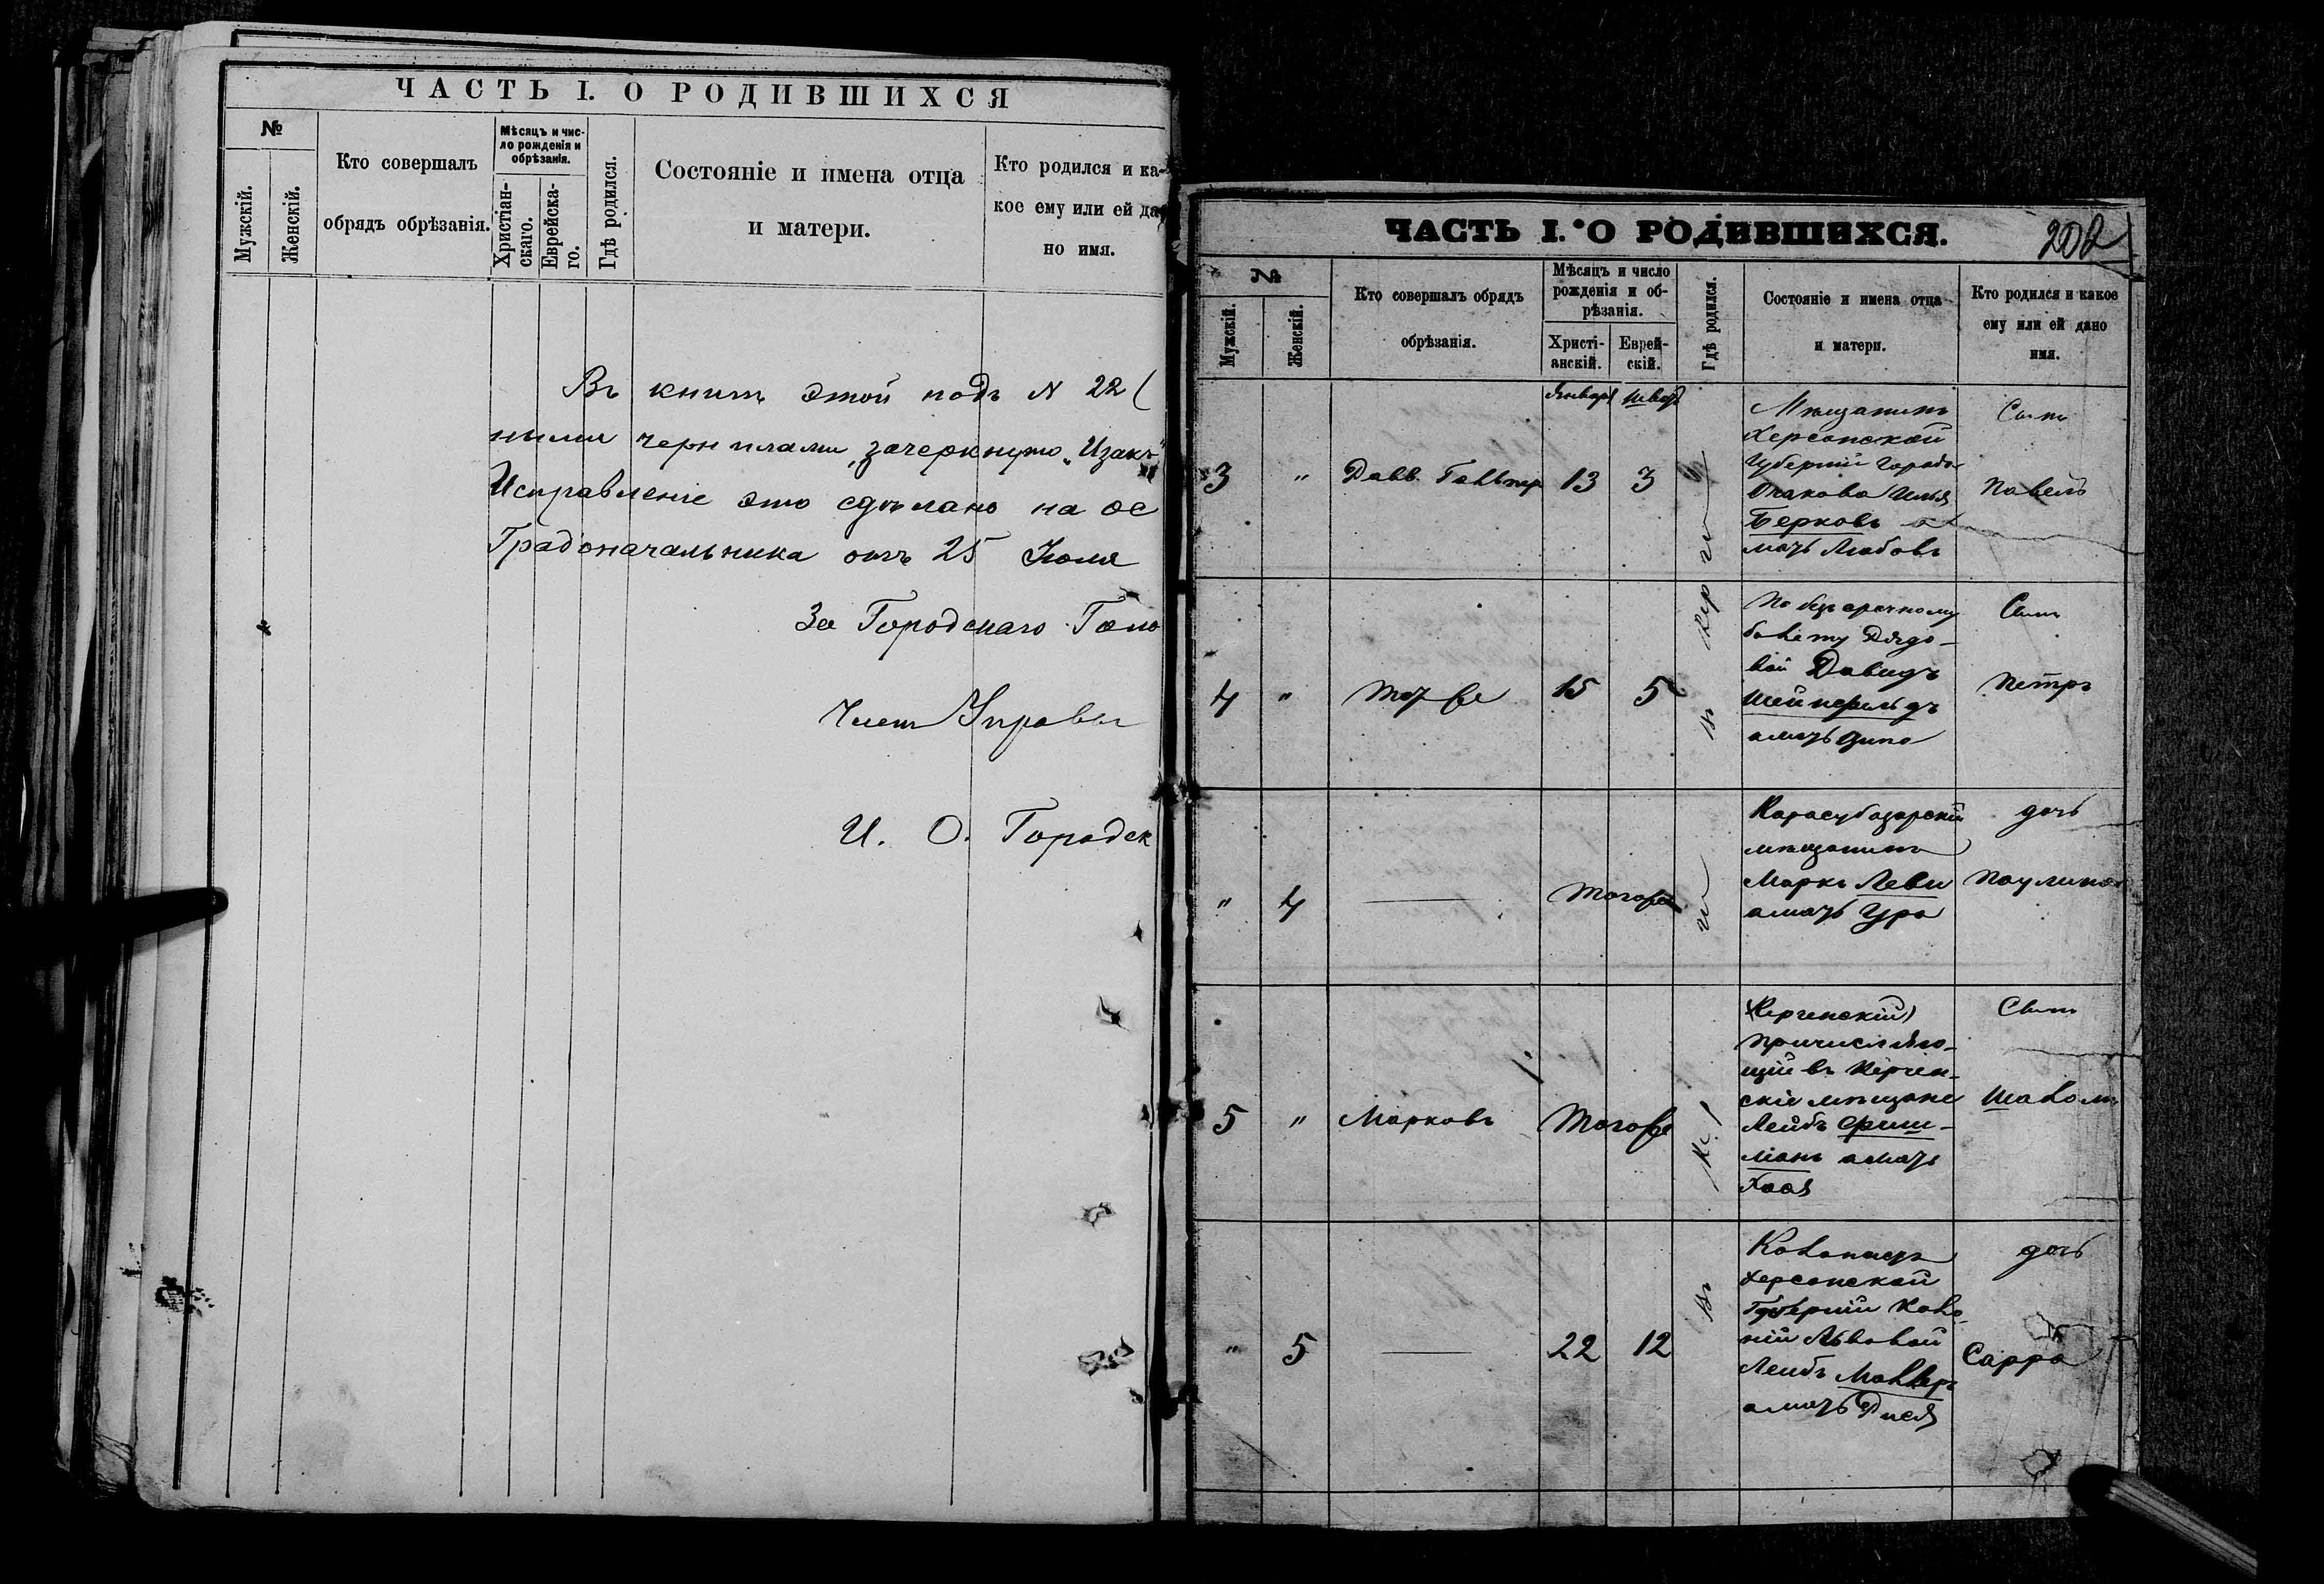 ЧАСТЬ I. О РОДИВШИХСЯ
№
Мужскій.
Женскій.
Кто совершалъ
обрядъ обрѣзанія.
Мѣсяцъ и чис-
ло рожденія и
обрѣзанія.
Христіан-
скаго.
Еврейска-
го.
Гдѣ родился.
Состояніе и имена отца
и матери.
Кто родился и ка-
кое ему или ей да
но имя.
Въ книгѣ этой подъ N 22(
ными чернилами, зачеркнуто „Изакъ"
Исправленіе это сдѣлано на ос
Градоначальника отъ 25 Іюля
За Городскаго Голо
Членъ Управы
И. О. Городск
ЧАСТЬ I. О РОДИВШИХСЯ.
202
№
Мужскій.
Женскій.
Кто совершалъ обрядъ
обрѣзанія.
Мѣсяцъ и число
рожденія и об-
рѣзанія.
Христі-
анскій.
Еврей-
скій.
Гдѣ родился.
Состояніе и имена отца
и матери.
Кто родился и какое
ему или ей дано
имя.
Январ Шват
3 " 13 3
Мѣщанинъ
Херсонской
Губерніи города
Очакова Илья
Берковъ а
мать Любовь
Сынъ
Павелъ
4 " тотже 15 5
По безсрочному
билету Рядо-
вой Давидъ
Шейнфельдъ
а мать
Сынъ
Петръ
" 4 — Тогоже
Карасубазарскій
мѣщанинъ
Маркъ Леви
а мать
дочь
Паулина
5 " Марковъ Тогоже
Керченскій
причисляю-
щій въ Керчен-
скіе мѣщане
Лейбъ Фиш-
манъ а мать
Хася
Сынъ
Шаломъ
" 5 — 22 12
Колонистъ
Херсонской
Губерніи Коло-
ніи Львовой
Лейбъ
а мать
дочь
Сарра